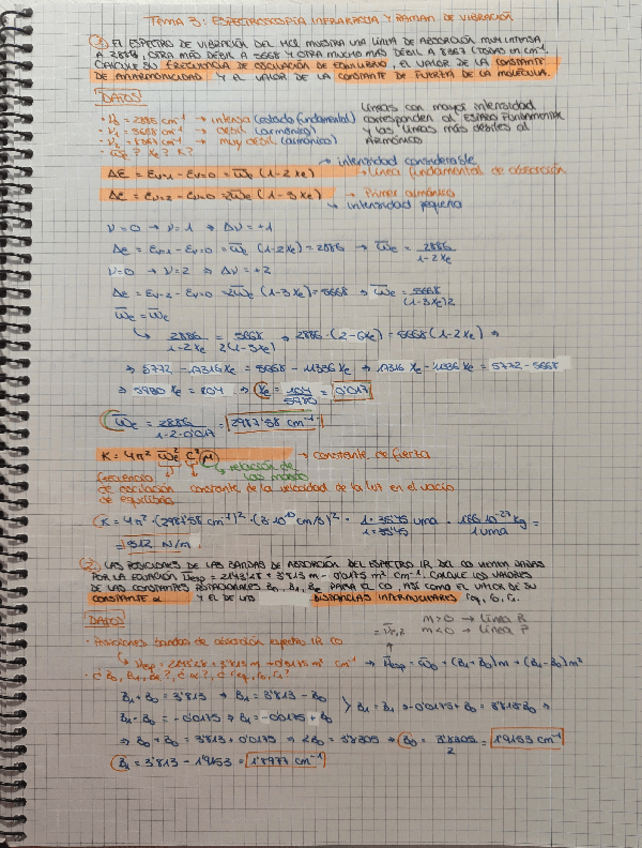 TEMA 3: ESPECTROSCOPÍA INFRARROJA Y RAMAN DE VIBRACIÓN
① EL ESPECTRO DE VIBRACIÓN DEL HCl MUESTRA UNA LÍNEA DE ABSORCIÓN MUY INTENSA
A 2886, OTRA MÁS DÉBIL A 5668 Y OTRA MUCHO MÁS DÉBIL A 8347 (TODAS EN cm⁻¹.
CALCULE SU FRECUENCIA DE OSCILACIÓN DE EQUILIBRIO, EL VALOR DE LA CONSTANTE
DE ANARMONICIDAD Y EL VALOR DE LA CONSTANTE DE FUERZA DE LA MOLÉCULA.
DATOS
cm⁻¹ → intensa (estado fundamental)
cm⁻¹ → débil (armónico)
cm⁻¹ → muy débil (armónico)
Xe? K?
Líneas con mayor intensidad
corresponden al ESTADO FUNDAMENTAL
y las líneas más débiles al
ARMÓNICO
→ intensidad considerable
ΔE = Ev=1 - Ev=0 = ω̄e (1-2Xe) → Línea fundamental de absorción
ΔE = Ev=2 - Ev=0 = 2ω̄e (1-3Xe) → Primer armónico
→ intensidad pequeña
ν=0 → ν=1 ⇒ Δν = +1
ΔE = Ev=1 - Ev=0 = ω̄e (1-2Xe) = 2886 → ω̄e = 2886/(1-2Xe)
ν=0 → ν=2 ⇒ Δν = +2
ΔE = Ev=2 - Ev=0 = 2ω̄e (1-3Xe) = 5668 ⇒ ω̄e = 5668/(1-3Xe)2
ω̄e = ω̄e
↳ 2886/(1-2Xe) = 5668/2(1-3Xe) ⇒ 2886·(2-6Xe) = 5668(1-2Xe) ⇒
⇒ 5772 - 17316Xe = 5668 - 11336Xe ⇒ 17316Xe - 11336Xe = 5772 - 5668
⇒ 5980 Xe = 104 ⇒ Xe = 104/5980 = 0'017
ω̄e = 2886/(1-2·0'017) = 2987'58 cm⁻¹
K = 4π² ω̄e² C² μ → constante de fuerza
→ relación de las masas
frecuencia
de oscilación constante de la velocidad de la luz en el vacío
de equilibrio
K = 4π²·(2987'58 cm⁻¹)²·(3·10¹⁰ cm/s)² · 1·35'45/1+35'45 uma · 1'66·10⁻²⁷ kg/1 uma =
= 512 N/m
② LAS POSICIONES DE LAS BANDAS DE ABSORCIÓN DEL ESPECTRO IR DEL CO VIENEN DADAS
POR LA ECUACIÓN ν̄exp = 2143'28 + 3'813 m - 0'0175 m² cm⁻¹. CALCULE LOS VALORES
DE LAS CONSTANTES ROTACIONALES B0, B1, Be PARA EL CO, ASÍ COMO EL VALOR DE SU
CONSTANTE α Y EL DE LAS DISTANCIAS INTERNUCLEARES
DATOS
m>0 → Línea R
m<0 → Línea P
= ν̄P,R
· Posiciones bandas de absorción espectro IR CO
↳ ν̄exp = 2143'28 + 3'813 m - 0'0175 m² cm⁻¹ → ν̄exp = ω̄0 + (B1+B0)m + (B1-B0)m²
· ¿B0, B1, Be?, ¿α?,
B1 + B0 = 3'813 ⇒ B1 = 3'813 - B0
B1 - B0 = -0'0175 ⇒ B1 = -0'0175 + B0
B1 = B1 ⇒ -0'0175 + B0 = 3'813 B0 ⇒
⇒ B0 + B0 = 3'813 + 0'0175 ⇒ 2B0 = 3'8305 ⇒ B0 = 3'8305/2 = 1'9153 cm⁻¹
B1 = 3'813 - 1'9153 = 1'8977 cm⁻¹